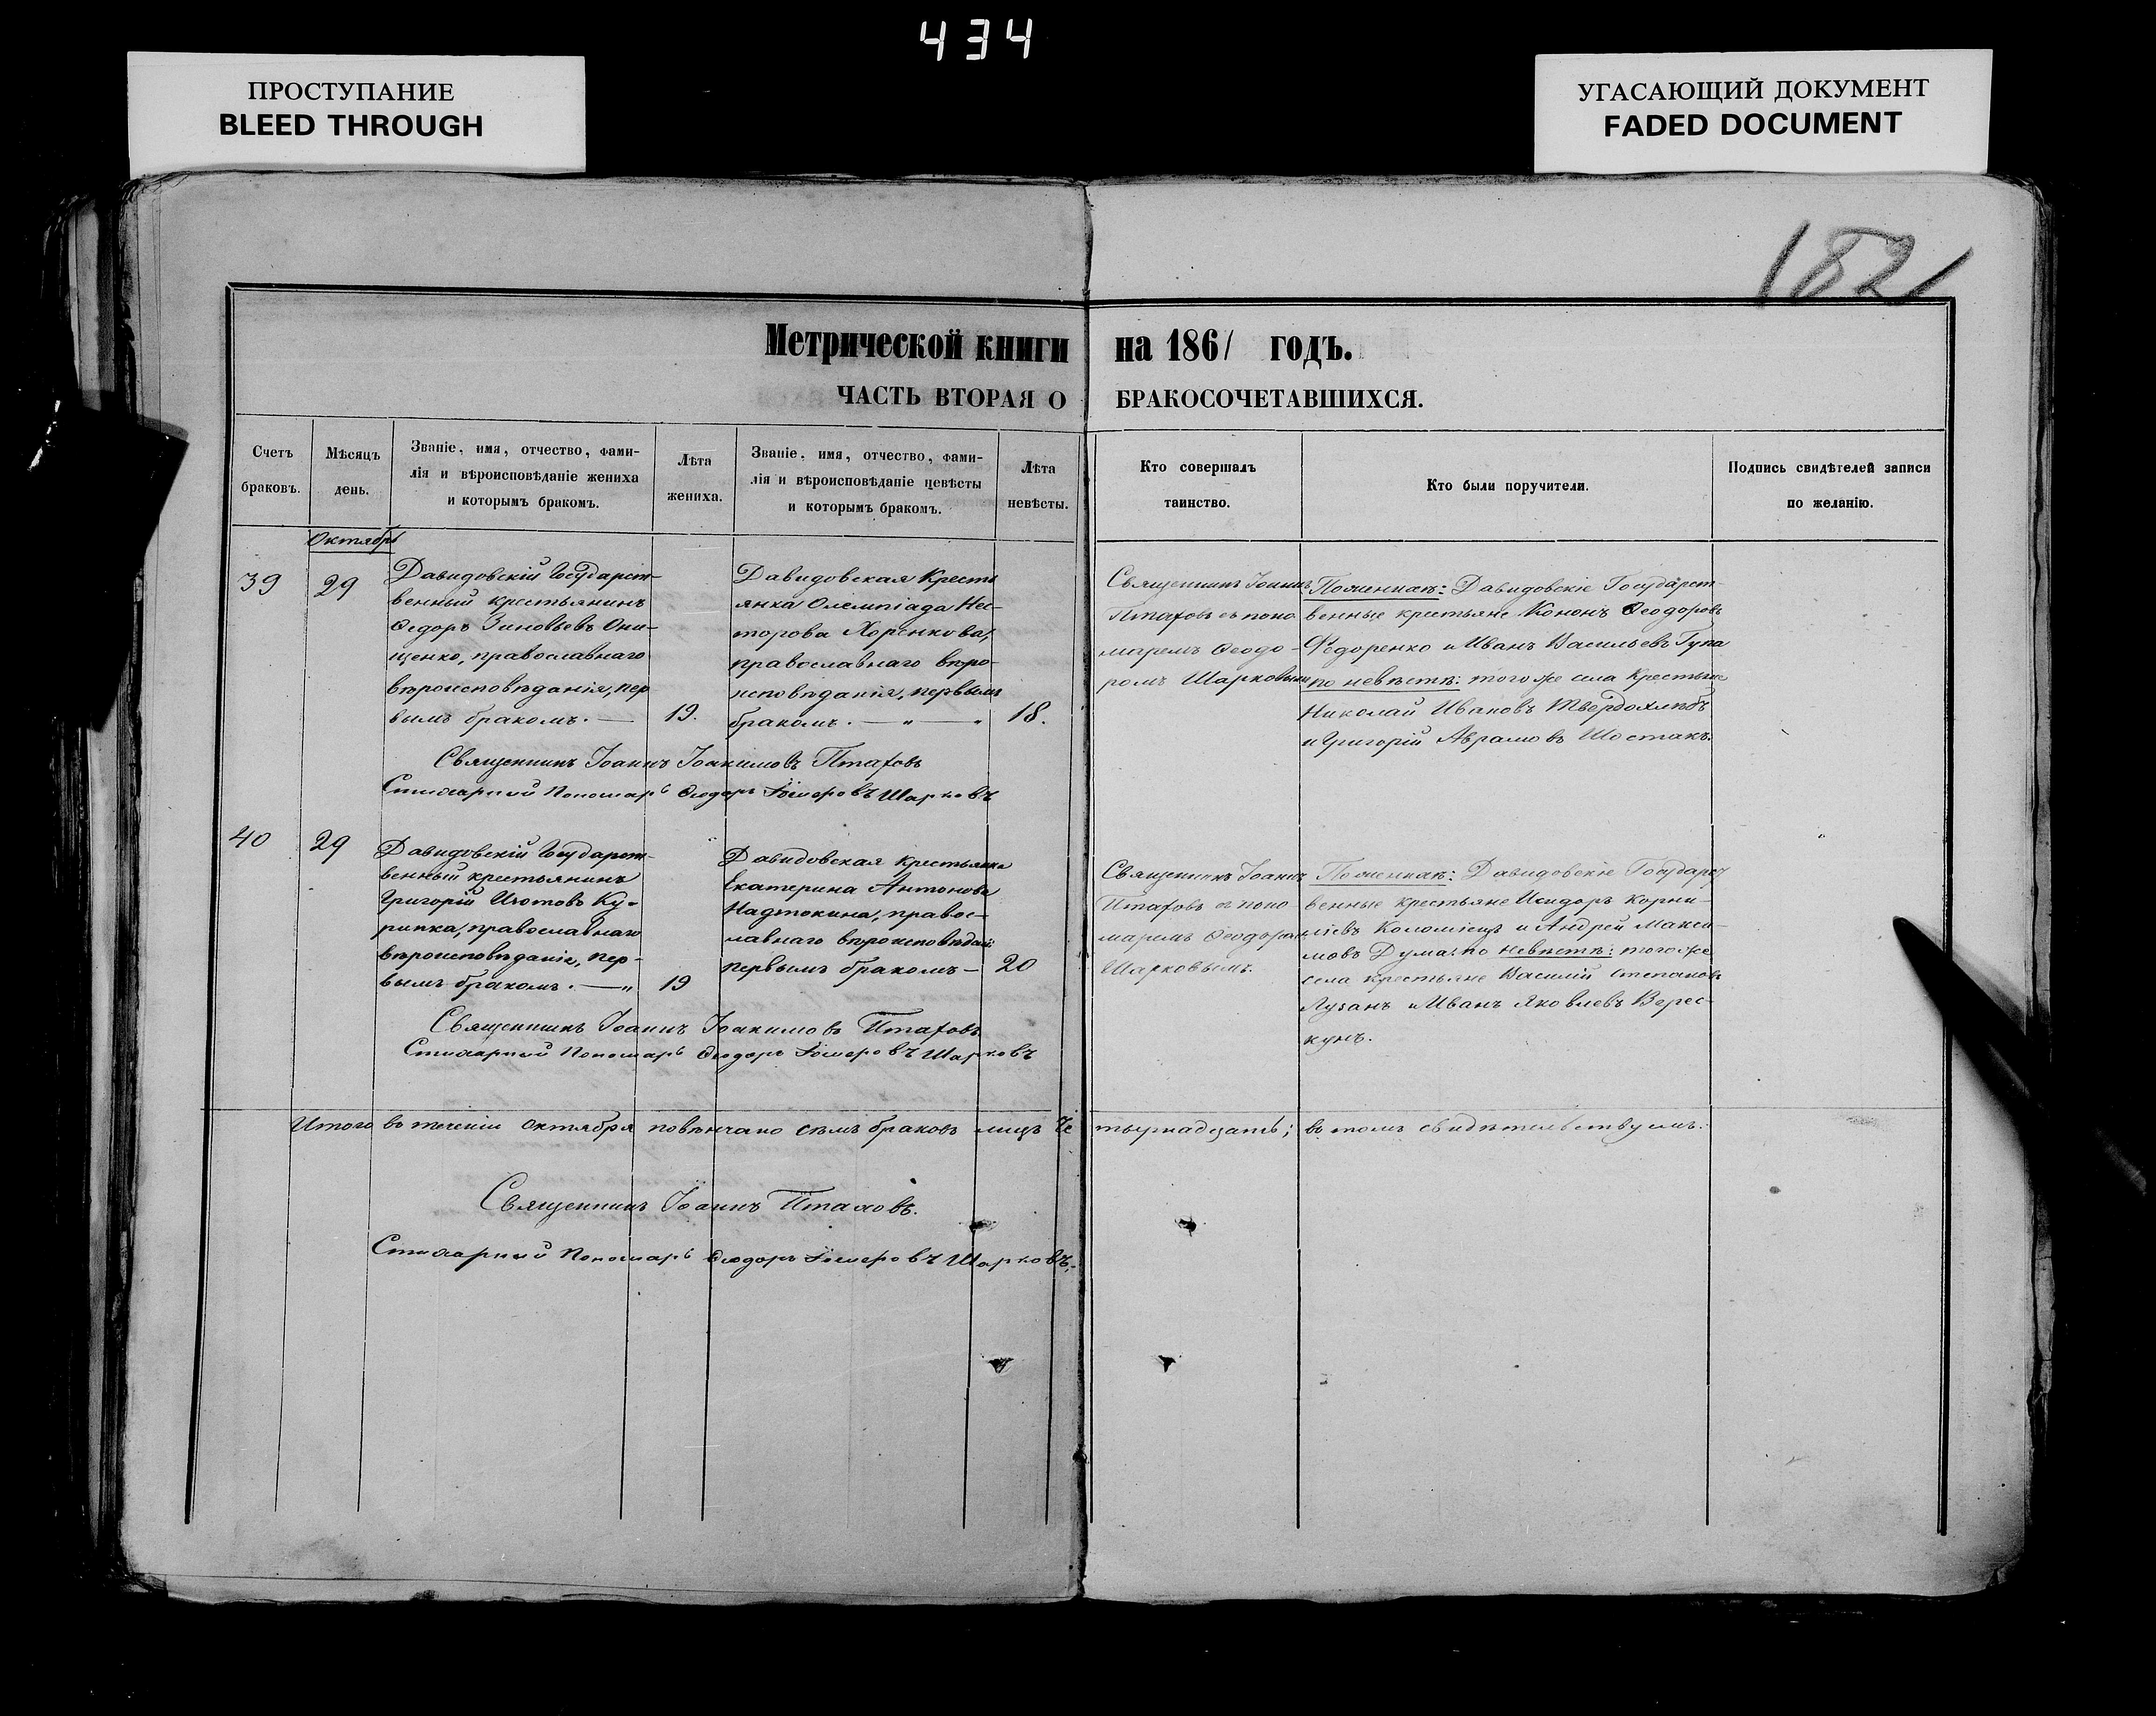 434
ПРОСТУПАНИЕ
BLEED THROUGH
УГАСАЮЩИЙ ДОКУМЕНТ
FADED DOCUMENT
1821
Метрической книги на 1861 годъ.
ЧАСТЬ ВТОРАЯ О БРАКОСОЧЕТАВШИХСЯ.
Счетъ браковъ.
Мѣсяцъ день.
Званіе, имя, отчество, фами-
лія и вѣроисповѣданіе жениха
и которымъ бракомъ.
Лѣта жениха.
Званіе, имя, отчество, фами-
лія и вѣроисповѣданіе невѣсты
и которымъ бракомъ.
Лѣта невѣсты.
Кто совершалъ
таинство.
Кто были поручители.
Подпись свидѣтелей записи
по желанію.
Октябрь
39
29
Давидовскій Государст-
венный крестьянинъ
Ѳедоръ Зиновьевъ Они-
щенко, православнаго
вѣроисповѣданія, пер
вымъ бракомъ.
19.
Давидовская Кресть
янка Олемпіада Нес-
торова Хоренкова,
православнаго вѣро-
исповѣданія, первымъ
бракомъ.
18.
Священникъ Іоаннъ
Птаховъ съ поно
маремъ Ѳеодо-
ромъ Шарковымъ
По женихѣ: Давидовскіе Государст-
венные крестьяне Кононъ Ѳеодоровъ
Ѳедоренко и Иванъ Васильевъ Гупа
по невѣстѣ: того же села крестьяне
Николай Ивановъ Твердохлѣбъ
и Григорій Аврамовъ Шостакъ.
Священникъ Іоаннъ Іоакимовъ Птаховъ
Стихарный Пономарь Ѳеодоръ Шарковъ
40
29
Давидовскій Государст-
венный крестьянинъ
Григорій Изотовъ Ку-
рипка, православнаго
вѣроисповѣданія, пер-
вымъ бракомъ.
19
Давидовская крестьянка
Екатерина Антонова
Надтокина, правос-
лавнаго вѣроисповѣданія
первымъ бракомъ
20
Священникъ Іоаннъ
Птаховъ съ поно
маремъ Ѳеодоромъ
Шарковымъ.
По женихѣ: Давидовскіе Государст
венные крестьяне Исидоръ Корни-
ліевъ Коломіецъ и Андрей Макси-
мовъ Дума: по невѣстѣ: того же
села крестьяне Василій Степановъ
Лузанъ и Иванъ Яковлевъ Верес-
кунъ.
Священникъ Іоаннъ Іоакимовъ Птаховъ
Стихарный Пономарь Ѳеодоръ Шарковъ
Итого въ теченіи Октября повѣнчано семь браковъ лицъ че тырнадцать; въ томъ свидѣтельствуемъ:
Священникъ Іоаннъ Птаховъ.
Стихарный Пономарь Ѳеодоръ Шарковъ.